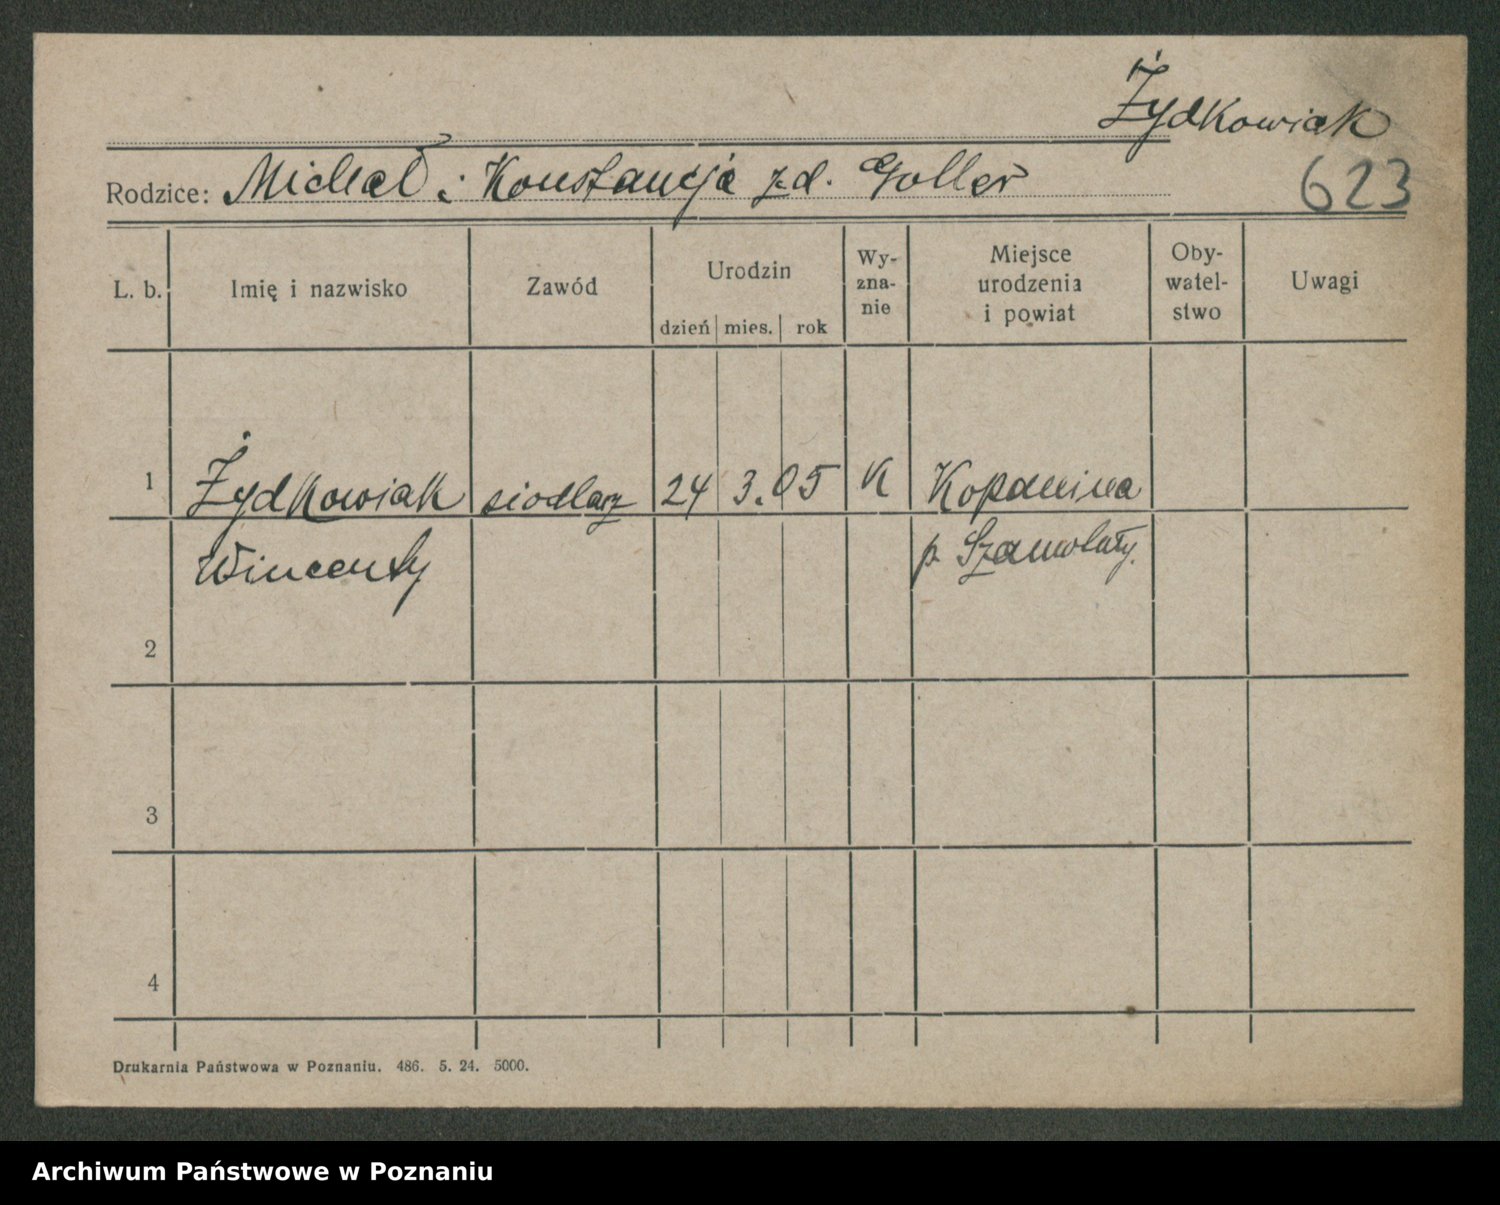 Żydkowiak
Rodzice: Michał i Konstancja zd. Goller
623
L. b. Imię i nazwisko Zawód Urodzin dzień mies. rok Wy-zna-nie Miejsce urodzenia i powiat Oby-watel-stwo Uwagi
1 Żydkowiak siodlarz 24 3. 05 K Kopanina
Wincenty p. Szamotuły.
2
3
4
Drukarnia Państwowa w Poznaniu. 486. 5. 24. 5000.
Archiwum Państwowe w Poznaniu